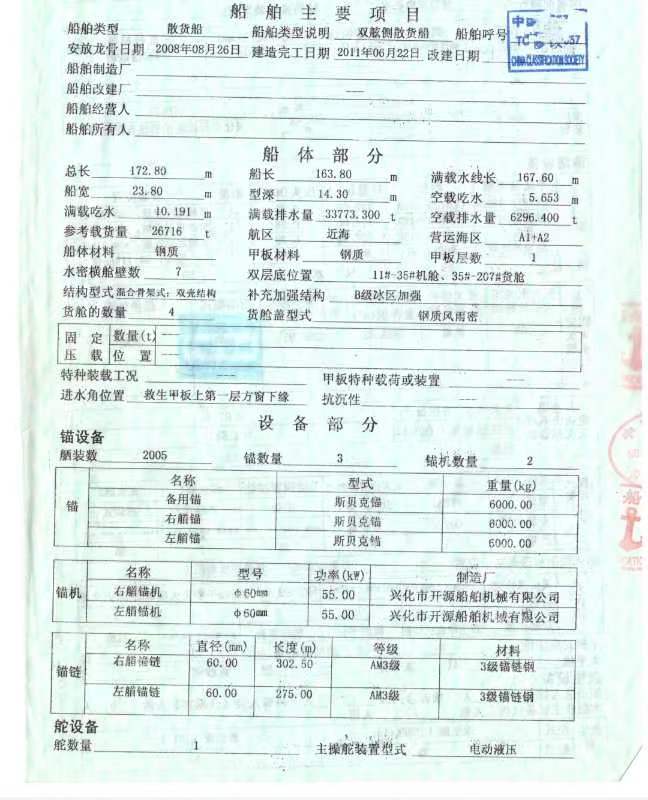 船舶主要项目
船舶类型 散货船 船舶类型说明 双舷侧散货船 船舶呼号
安放龙骨日期 2008年08月26日 建造完工日期 2011年06月22日 改建日期
CHINA CLASSIFICATION SOCIETY
船舶制造厂
船舶改建厂 ---
船舶经营人
船舶所有人
船体部分
总长 172.80 m 船长 163.80 m 满载水线长 167.60 m
船宽 23.80 m 型深 14.30 m 空载吃水 5.653 m
满载吃水 10.191 m 满载排水量 33773.300 t 空载排水量 6296.400 t
参考载货量 26716 t 航区 近海 营运海区 A1+A2
船体材料 钢质 甲板材料 钢质 甲板层数 1
水密横舱壁数 7 双层底位置 11#-35#机舱、35#-207#货舱
结构型式 混合骨架式;双壳结构 补充加强结构 B级冰区加强
货舱的数量 4 货舱盖型式 钢质风雨密
固定压载 数量(t) ---
位置 ---
特种装载工况 --- 甲板特种载荷或装置 ---
进水角位置 救生甲板上第一层方窗下缘 抗沉性 ---
设备部分
锚设备
舾装数 2005 锚数量 3 锚机数量 2
锚 名称 型式 重量(kg)
备用锚 斯贝克锚 6000.00
右艏锚 斯贝克锚 6000.00
左艏锚 斯贝克锚 6000.00
锚机 名称 型号 功率(kW) 制造厂
右艏锚机 φ60mm 55.00 兴化市开源船舶机械有限公司
左艏锚机 φ60mm 55.00 兴化市开源船舶机械有限公司
锚链 名称 直径(mm) 长度(m) 等级 材料
右艏锚链 60.00 302.50 AM3级 3级锚链钢
左艏锚链 60.00 275.00 AM3级 3级锚链钢
舵设备
舵数量 1 主操舵装置型式 电动液压